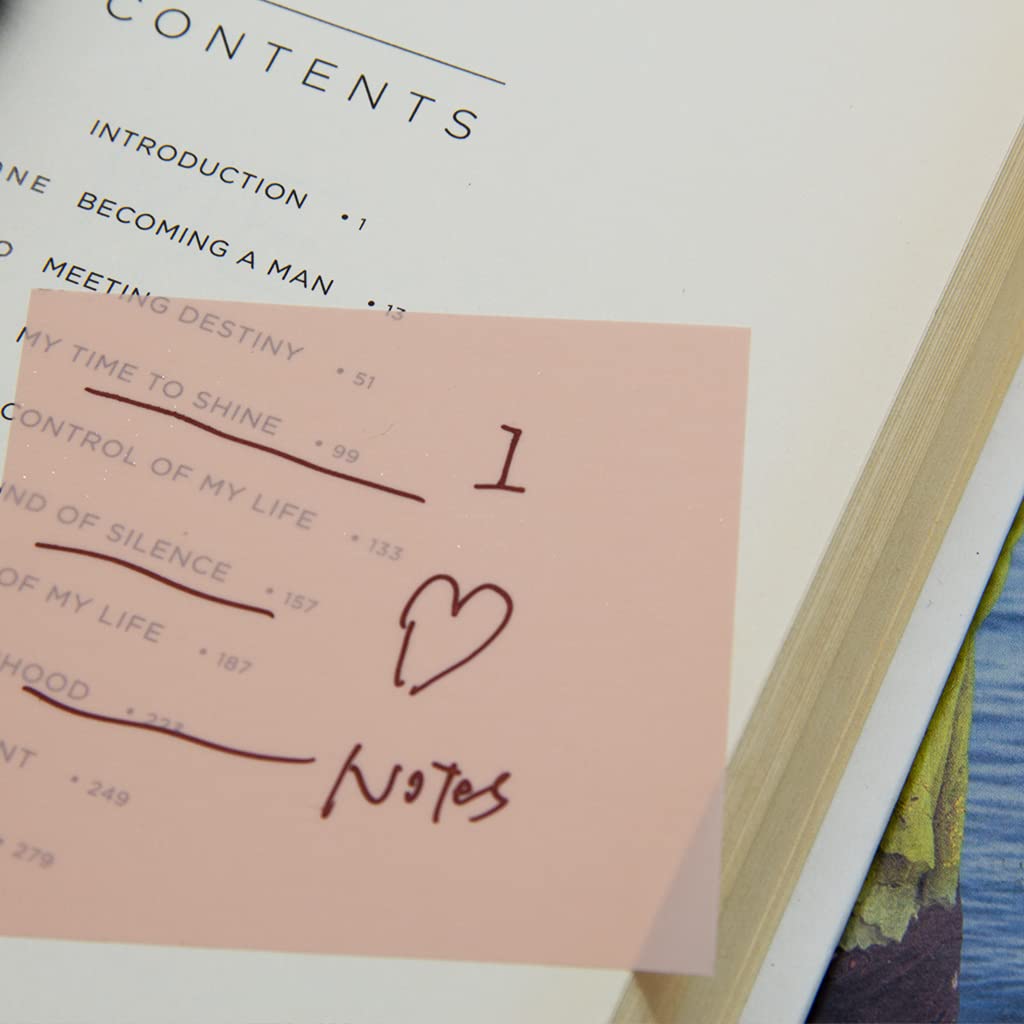 CONTENTS
INTRODUCTION • 1
ONE BECOMING A MAN • 13
MEETING DESTINY • 51
MY TIME TO SHINE • 99
CONTROL OF MY LIFE • 133
OF SILENCE • 157
OF MY LIFE • 187
HOOD • 223
NT • 249
• 279
1
♡
Notes